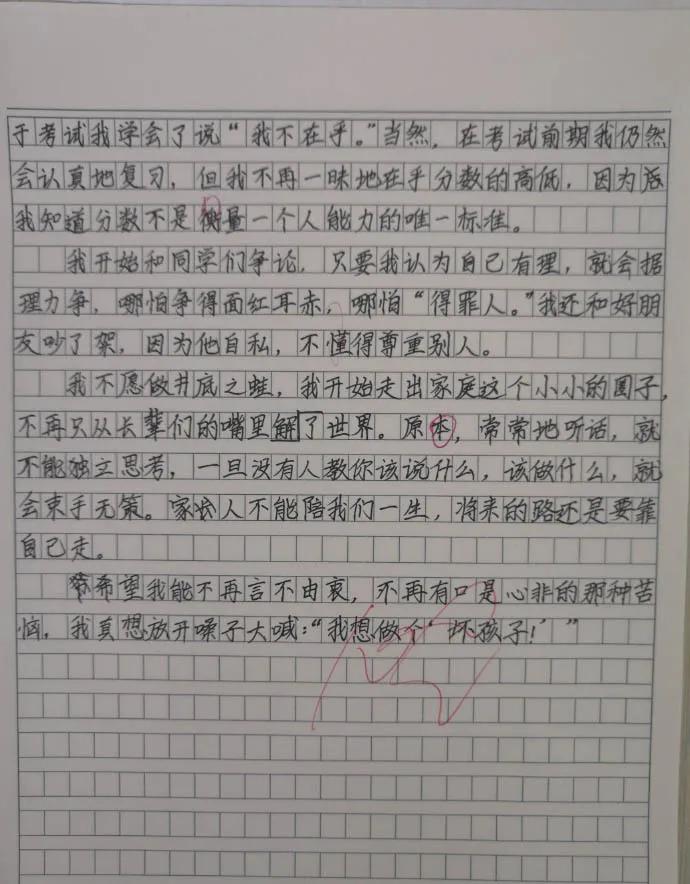 于考试我学会了说“我不在乎。”当然，在考试前期我仍然
会认真地复习，但我不再一昧地在乎分数的高低，因为
我知道分数不是衡量一个人能力的唯一标准。
我开始和同学们争论，只要我认为自己有理，就会据
理力争，哪怕争得面红耳赤，哪怕“得罪人。”我还和好朋
友吵了架，因为他自私，不懂得尊重别人。
我不愿做井底之蛙，我开始走出家庭这个小小的圈子，
不再只从长辈们的嘴里解了世界。原本，常常地听话，就
不能独立思考，一旦没有人教你该说什么，该做什么，就
会束手无策。家长人不能陪我们一生，将来的路还是要靠
自己走。
希望我能不再言不由衷，不再有口是心非的那种苦
恼，我真想放开嗓子大喊：“我想做个‘坏孩子！’”